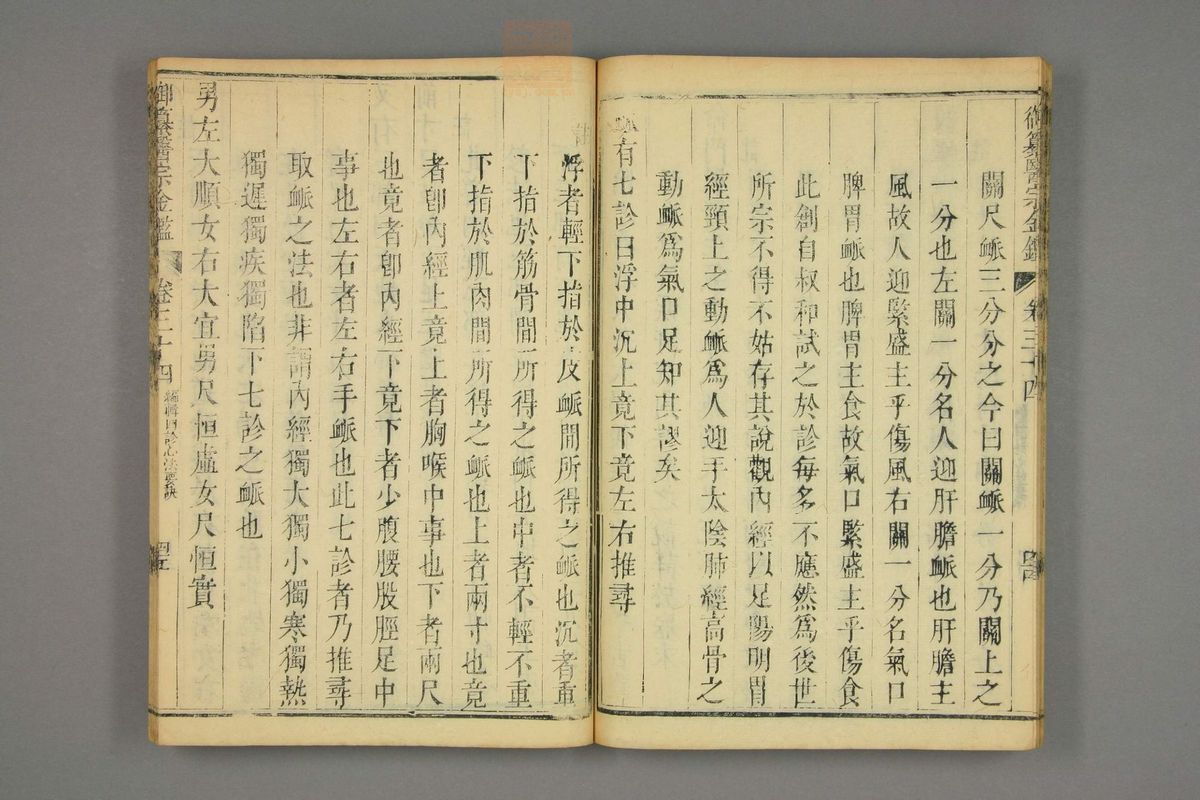 御纂醫宗金鑑 卷三十四 四四
關尺脈三分分之今曰關脈一分乃關上之
一分也左關一分名人迎肝膽脈也肝膽主
風故人迎緊盛主乎傷風右關一分名氣口
脾胃脈也脾胃主食故氣口緊盛主乎傷食
此創自叔和試之於診每多不應然為後世
所宗不得不姑存其說觀內經以足陽明胃
經頸上之動脈為人迎手太陰肺經高骨之
動脈為氣口足知其謬矣
脈有七診曰浮中沉上竟下竟左右推尋
浮者輕下指於皮脈間所得之脈也沉者重
下指於筋骨間所得之脈也中者不輕不重
下指於肌肉間所得之脈也上者兩寸也竟
者卽內經上竟上者胸喉中事也下者兩尺
也竟者卽內經下竟下者少腹腰股脛足中
事也左右者左右手脈也此七診者乃推尋
取脈之法也非謂內經獨大獨小獨寒獨熱
獨遲獨疾獨陷下七診之脈也
男左大順女右大宜男尺恒虛女尺恒實
御纂醫宗金鑑 卷三十四 編輯四診心法要訣 四五